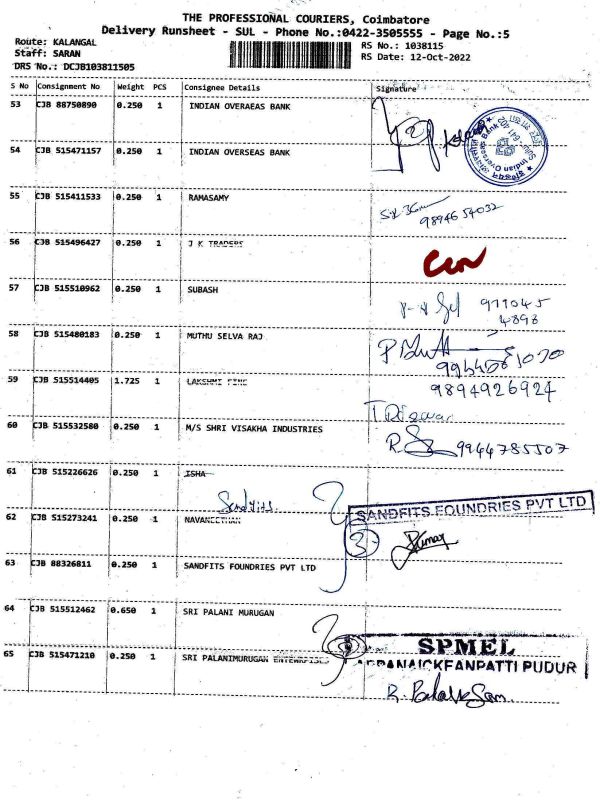 THE PROFESSIONAL COURIERS, Coimbatore
Delivery Runsheet - SUL - Phone No.:0422-3505555 - Page No.:5
Route: KALANGAL
Staff: SARAN
DRS No.: DCJB103811505
RS No.: 1038115
RS Date: 12-Oct-2022
S No Consignment No Weight PCS Consignee Details Signature
53 CJB 88750890 0.250 1 INDIAN OVERAEAS BANK
54 CJB 515471157 0.250 1 INDIAN OVERSEAS BANK
Indian Overseas Bank
55 CJB 515411533 0.250 1 RAMASAMY
9894654032
56 CJB 515496427 0.250 1 J K TRADERS
57 CJB 515510962 0.250 1 SUBASH
977045
4898
58 CJB 515480183 0.250 1 MUTHU SELVA RAJ
59 CJB 515514405 1.725 1 LAKSHMI FINE
9894926924
60 CJB 515532580 0.250 1 M/S SHRI VISAKHA INDUSTRIES
9944785507
61 CJB 515226626 0.250 1 ISHA
Sandfits
SANDFITS FOUNDRIES PVT LTD
62 CJB 515273241 0.250 1 NAVANEETHAN
3
Kumar
63 CJB 88326811 0.250 1 SANDFITS FOUNDRIES PVT LTD
64 CJB 515512462 0.650 1 SRI PALANI MURUGAN
SPMEL
65 CJB 515471210 0.250 1 SRI PALANIMURUGAN ENTERPRISES
APPANAICKFANPATTI PUDUR